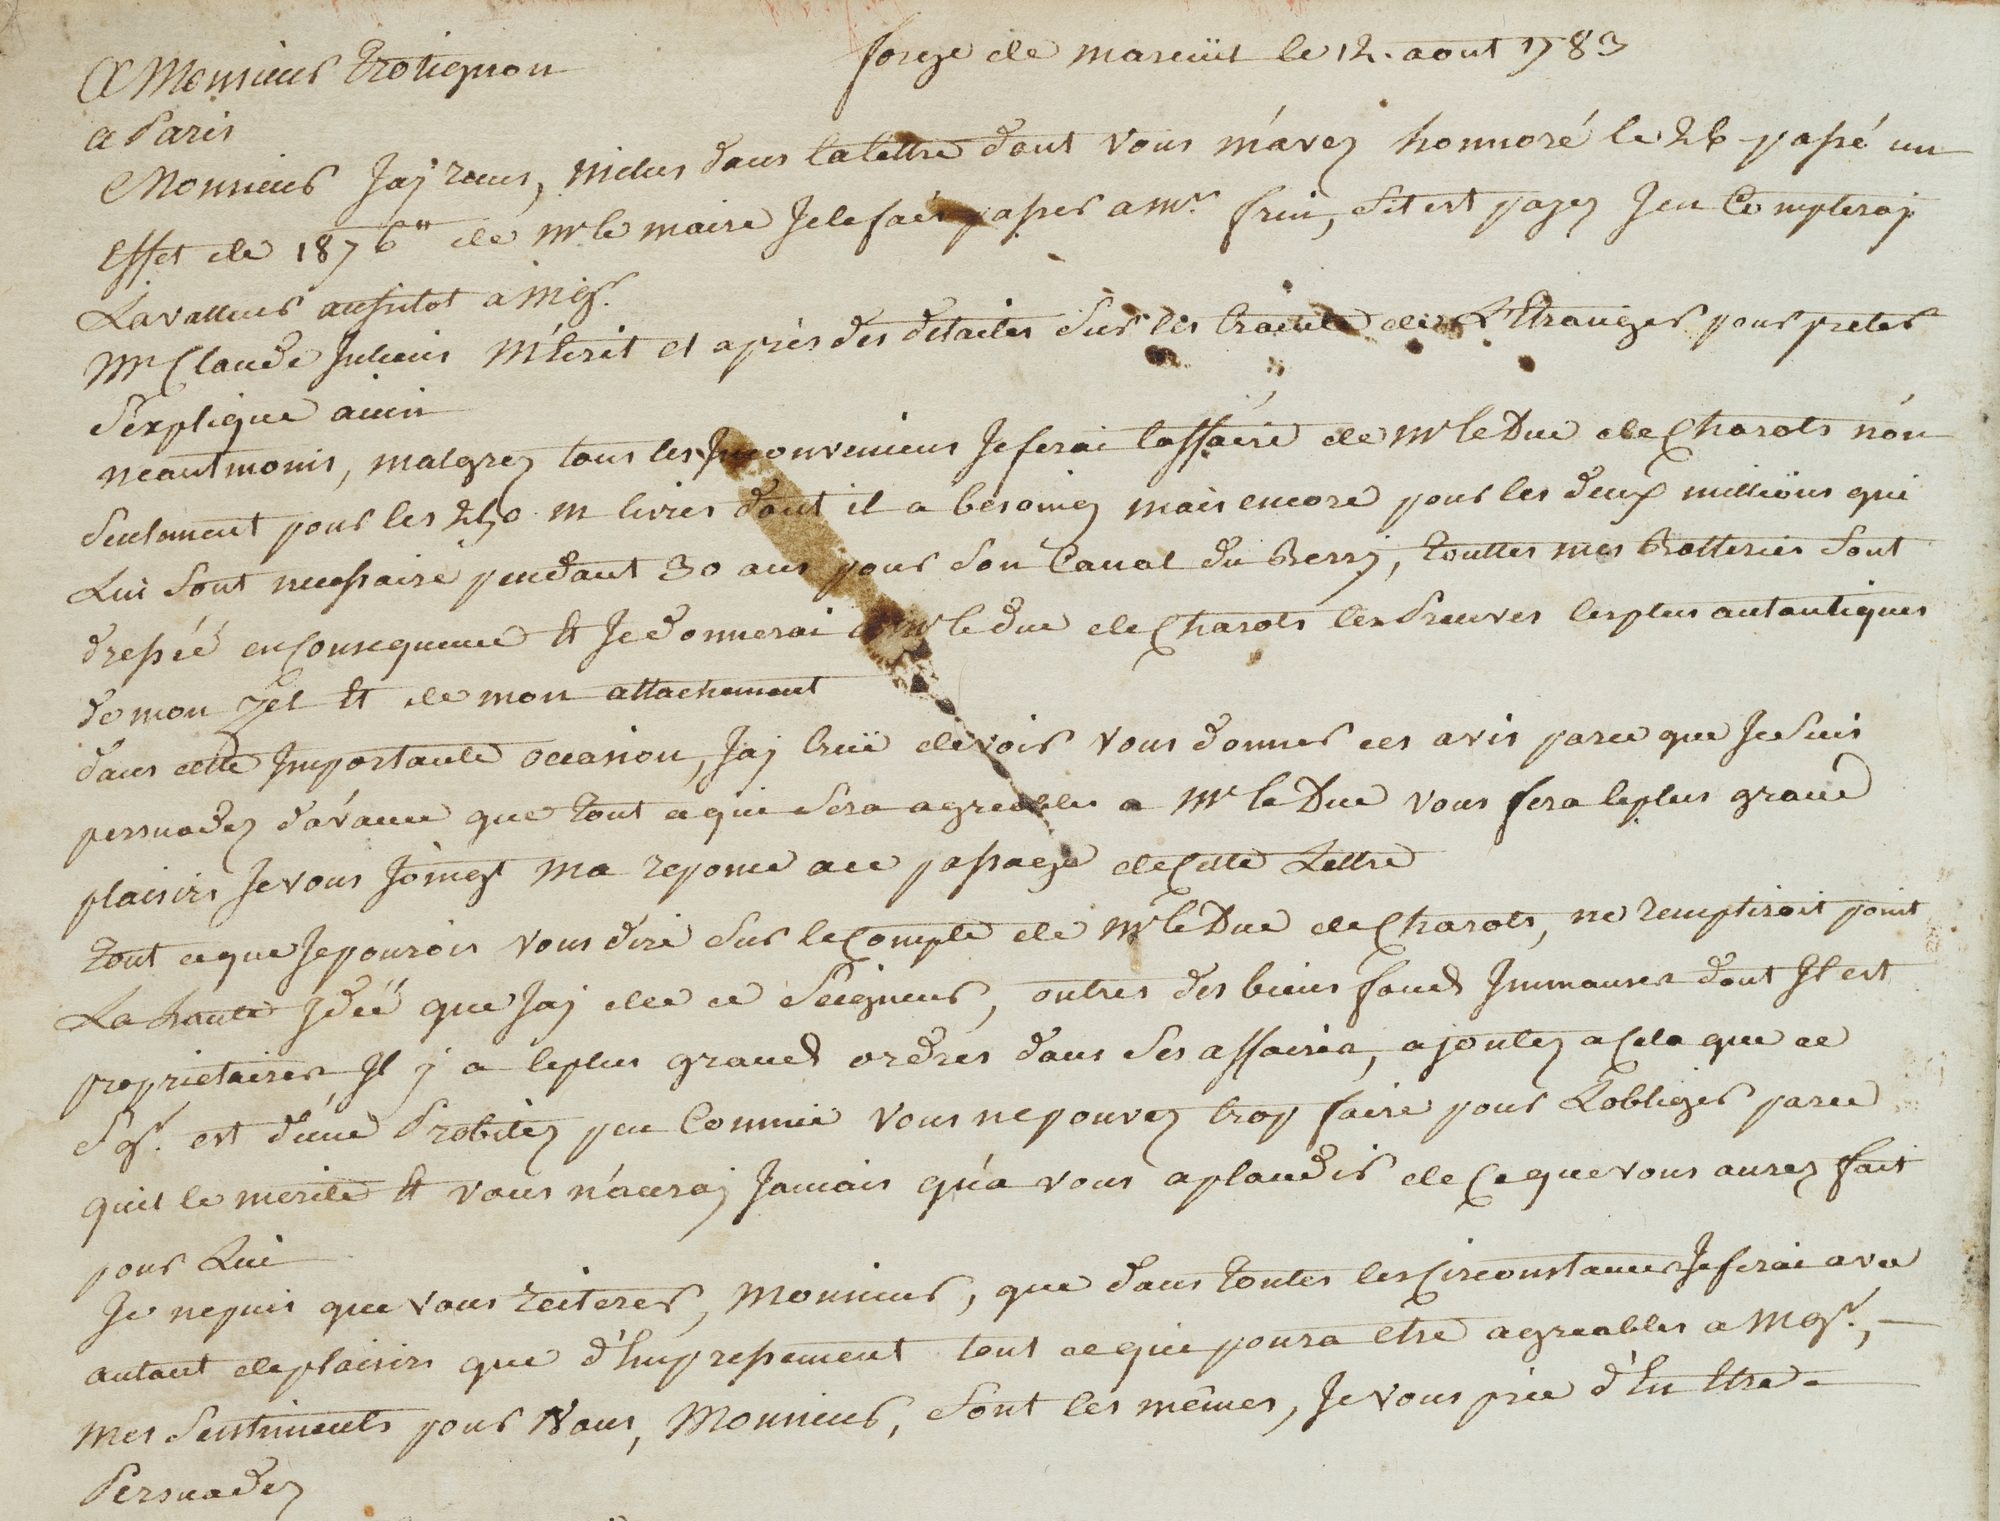 A Monsieur Trotignon
forge de mareüil le 12. aout 1783
a Paris
Monsieur Jaj recus, inclus dans la lettre dont vous m'avez honnoré le 26 passé un
Effet de 1876# de Mr le maire Je le fais passer a Mr. frin, Sil est payez Jen Compteraj
Lavalleur aussitot a Mgr.
Mr Claude Julien M'Ecrit et après des détailes Sur les de L'Etranger pour preter
S'explique ainsi
neantmoins, malgrez tous les Inconveniens Je ferai laffaire de Mr le Duc de Charots nón
Seulement pour les 250 m livres dont il a besoing mais encore pour les deux millions qui
Lui Sont necessaire pendant 30 ans pour Son Canal du Berrj, touttes mes Batteries Sont
dressée en Consequence Et Je donnerai a Mr le duc de Charots les Preuves les plus autantiques
de mon Zel Et de mon attachement
dans cette Importante occasion, Jaj Cruë devoir vous donner ces avis parce que Je Suis
persuadez d'avance que tout ce qui Sera agreables a Mr le Duc vous fera le plus grand
plaisirs Je vous Joingt ma reponce a ce passage de Cette Lettre
tout ce que Je pourois vous dire Sur le Compte de Mr le Duc de Charots, ne rempliroit point
La haute Jdéé que Jaj de ce Seigneur, outres des biens fonds Immances dont Il est
proprietaires Il y a le plus grand ordres dans Ses affaires, ajoutez a Cela que ce
Sgr. est d'une Probitez peu Comune vous ne pouvez trop faire pour Lobliger parce
quil le merite Et vous n'auraj Jamais qu'a vous aplaudir de Ce que vous aurez fait
pour Lui
Je ne puis que vous reiterer, Monsieur, que dans toutes les Circonstances Je ferai avec
autant de plaisirs que d'Empressement tout ce qui poura Etre agreables a Mgr.,
mes Sentiments pour Vous, Monsieur, Sont les mêmes, Je vous prie d'En Etre
Persuadez